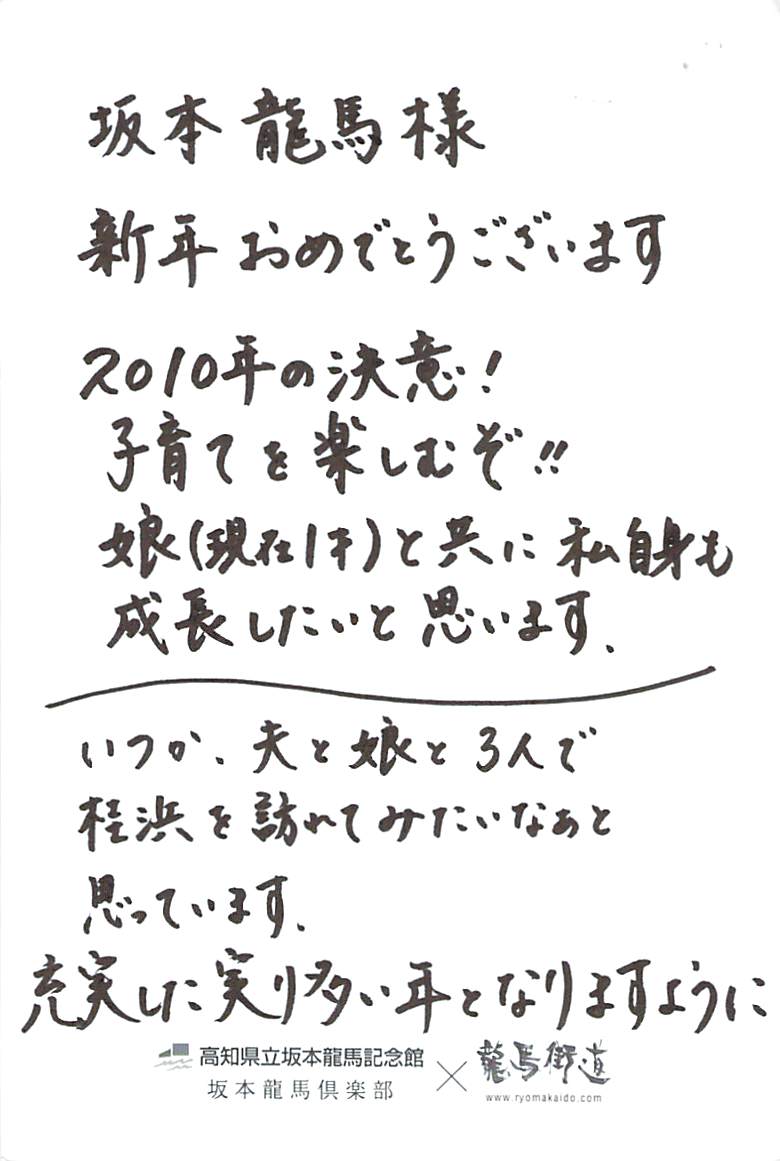 坂本龍馬様
新年おめでとうございます
2010年の決意!
子育てを楽しむぞ!!
娘(現在1才)と共に私自身も
成長したいと思います.
いつか、夫と娘と3人で
桂浜を訪れてみたいなぁと
思っています.
充実した実り多い年となりますように
高知県立坂本龍馬記念館
坂本龍馬倶楽部
×
龍馬街道
www.ryomakaido.com